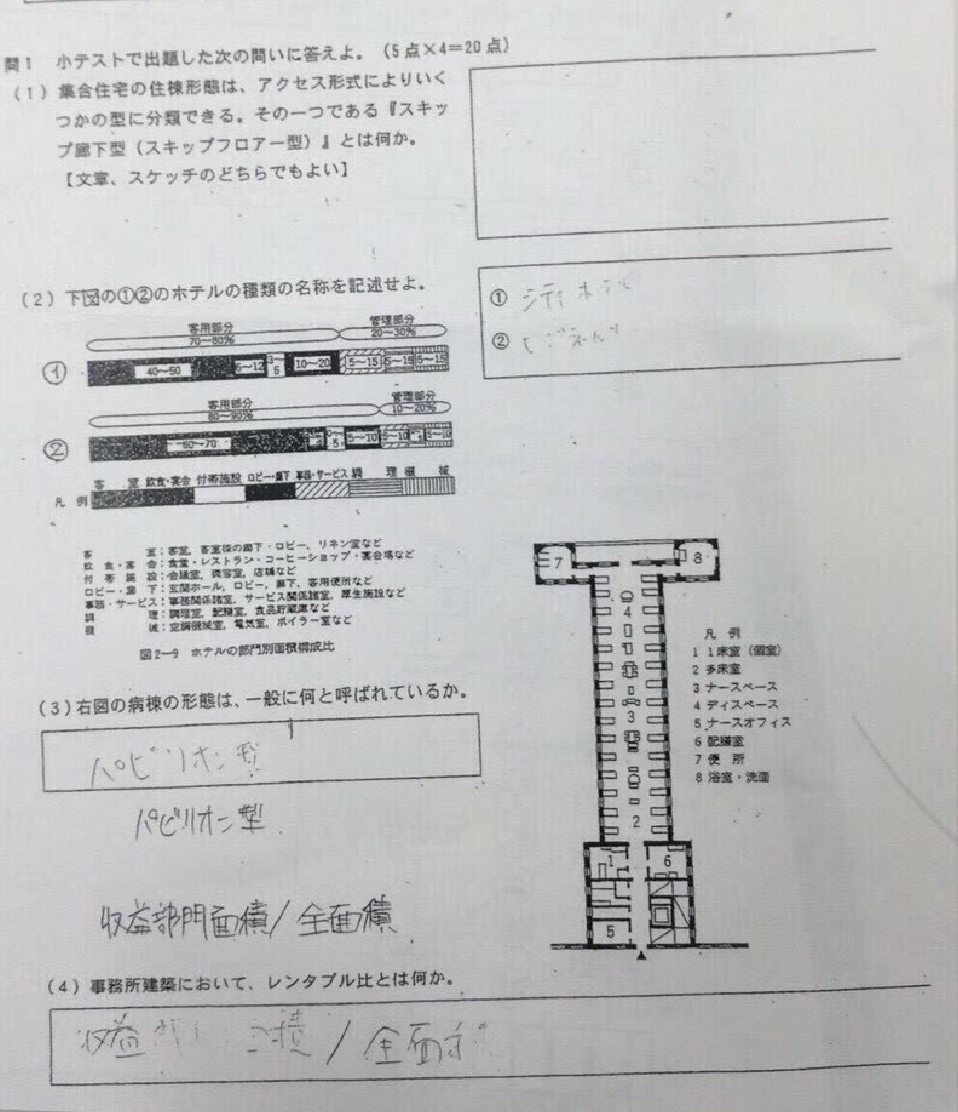 問1 小テストで出題した次の問いに答えよ。(5点×4=20点)
(1)集合住宅の住棟形態は、アクセス形式によりいく
つかの型に分類できる。その一つである『スキッ
プ廊下型(スキップフロアー型)』とは何か。
【文章、スケッチのどちらでもよい】
(2)下図の①②のホテルの種類の名称を記述せよ。
① シティホテル
②
客用部分
70〜80%
管理部分
20〜30%
①
40〜50
5〜12
3〜5
10〜20
5〜15
5〜15
5〜15
客用部分
80〜90%
管理部分
10〜20%
②
60〜70
0〜5
5〜10
5〜10
5〜10
凡例
客室 飲食・宴会 付帯施設 ロビー・廊下 事務・サービス 調理 機械
客室:客室、客室棟の廊下・ロビー、リネン室など
飲食・宴会:食堂・レストラン・コーヒーショップ・宴会場など
付帯施設:会議室、美容室、店舗など
ロビー・廊下:玄関ホール、ロビー、廊下、客用便所など
事務・サービス:事務関係諸室、サービス関係諸室、厚生施設など
調理:調理室、配膳室、食品貯蔵庫など
機械:空調機械室、電気室、ボイラー室など
図2―9 ホテルの部門別面積構成比
(3)右図の病棟の形態は、一般に何と呼ばれているか。
パビリオン型
パビリオン型
7
8
4
3
2
1
6
5
凡例
1 1床室(個室)
2 多床室
3 ナースベース
4 デイスペース
5 ナースオフィス
6 配膳室
7 便所
8 浴室・洗面
収益部門面積/全面積
(4)事務所建築において、レンタブル比とは何か。
収益 面積/全面積